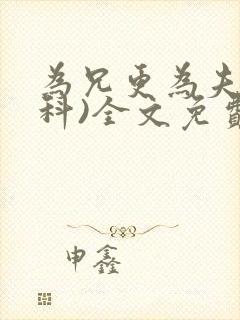 為兄更為夫
科)全文免費
申鑫